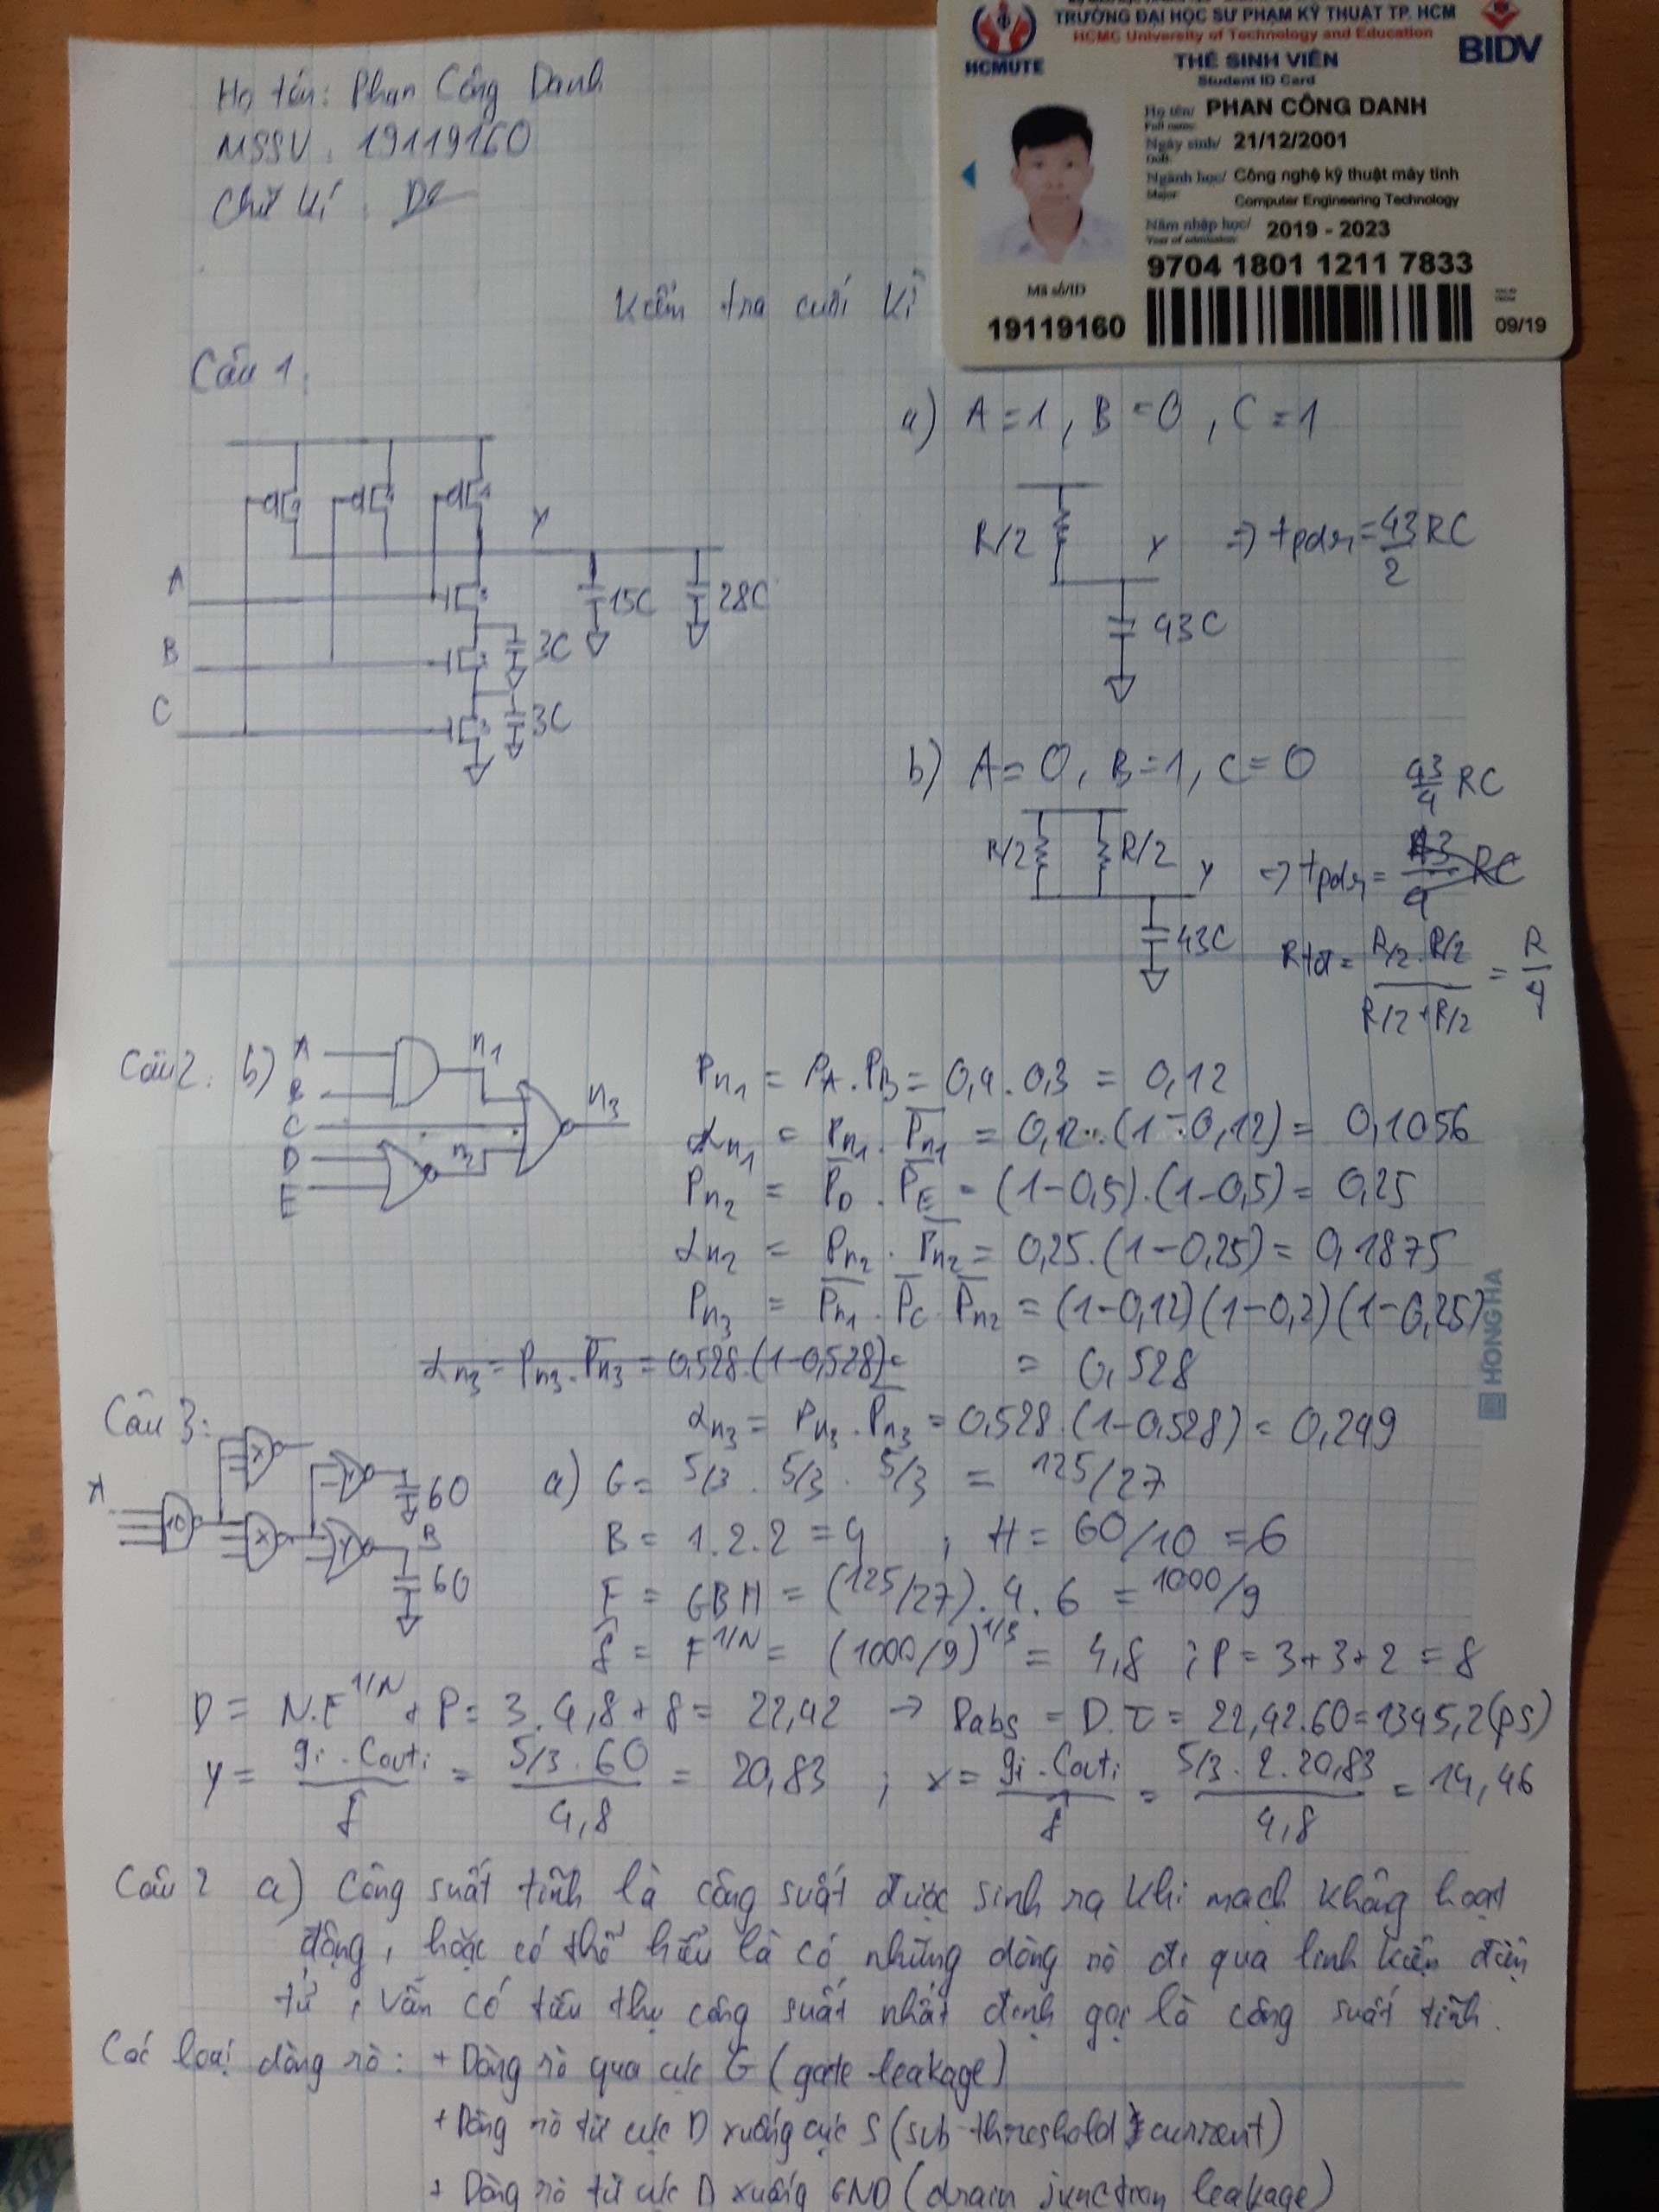 TRƯỜNG ĐẠI HỌC SƯ PHẠM KỸ THUẬT TP. HCM
HCMC University of Technology and Education
HCMUTE
THẺ SINH VIÊN
BIDV
Student ID Card
Họ tên/ PHAN CÔNG DANH
Full name
Ngày sinh/ 21/12/2001
DoB
Ngành học/ Công nghệ kỹ thuật máy tính
Major
Computer Engineering Technology
Năm nhập học/ 2019 - 2023
Year of admission
9704 1801 1211 7833
Mã số/ID
19119160
09/19
Họ tên: Phan Công Danh
MSSV: 19119160
Chữ kí:
Kiểm tra cuối kì
Câu 1:
Y
15C
28C
A
B
3C
C
3C
a) A = 1, B = 0, C = 1
R/2
Y
=> tpdr = 43/2 RC
43C
b) A = 0, B = 1, C = 0
43/4 RC
R/2
R/2
Y
=> tpdr =
43C
Rtđ = (R/2 . R/2)/(R/2 + R/2) = R/4
Câu 2: b)
A
B
C
D
E
n1
n3
Pn1 = PA . PB = 0,4 . 0,3 = 0,12
αn1 = Pn1 . P̅n1 = 0,12 . (1 - 0,12) = 0,1056
Pn2 = P̅D . P̅E = (1-0,5) . (1-0,5) = 0,25
αn2 = Pn2 . P̅n2 = 0,25 . (1-0,25) = 0,1875
Pn3 = P̅n1 . P̅C . P̅n2 = (1-0,12)(1-0,2)(1-0,25)
αn3 = Pn3 . P̅n3 = 0,528 . (1-0,528) =
= 0,528
αn3 = Pn3 . P̅n3 = 0,528 . (1-0,528) = 0,249
HONG HA
Câu 3:
A
10
x
x
y
y
60
B
60
a) G = 5/3 . 5/3 . 5/3 = 125/27
B = 1.2.2 = 4 ; H = 60/10 = 6
F = GBH = (125/27) . 4 . 6 = 1000/9
f̂ = F^1/N = (1000/9)^1/3 = 4,8 ; P = 3 + 3 + 2 = 8
D = N.F^1/N + P = 3 . 4,8 + 8 = 22,42 → Dabs = D.τ = 22,42.60 = 1345,2(ps)
y = (gi . Couti)/f̂ = (5/3 . 60)/4,8 = 20,83 ; x = (gi . Couti)/f̂ = (5/3 . 2 . 20,83)/4,8 = 14,46
Câu 2 a) Công suất tĩnh là công suất được sinh ra khi mạch không hoạt
động, hoặc có thể hiểu là có những dòng rò đi qua linh kiện điện
tử, vẫn có tiêu thụ công suất nhất định gọi là công suất tĩnh.
Các loại dòng rò: + Dòng rò qua cực G (gate leakage)
+ Dòng rò từ cực D xuống cực S (sub-threshold current)
+ Dòng rò từ cực D xuống GND (drain junction leakage)